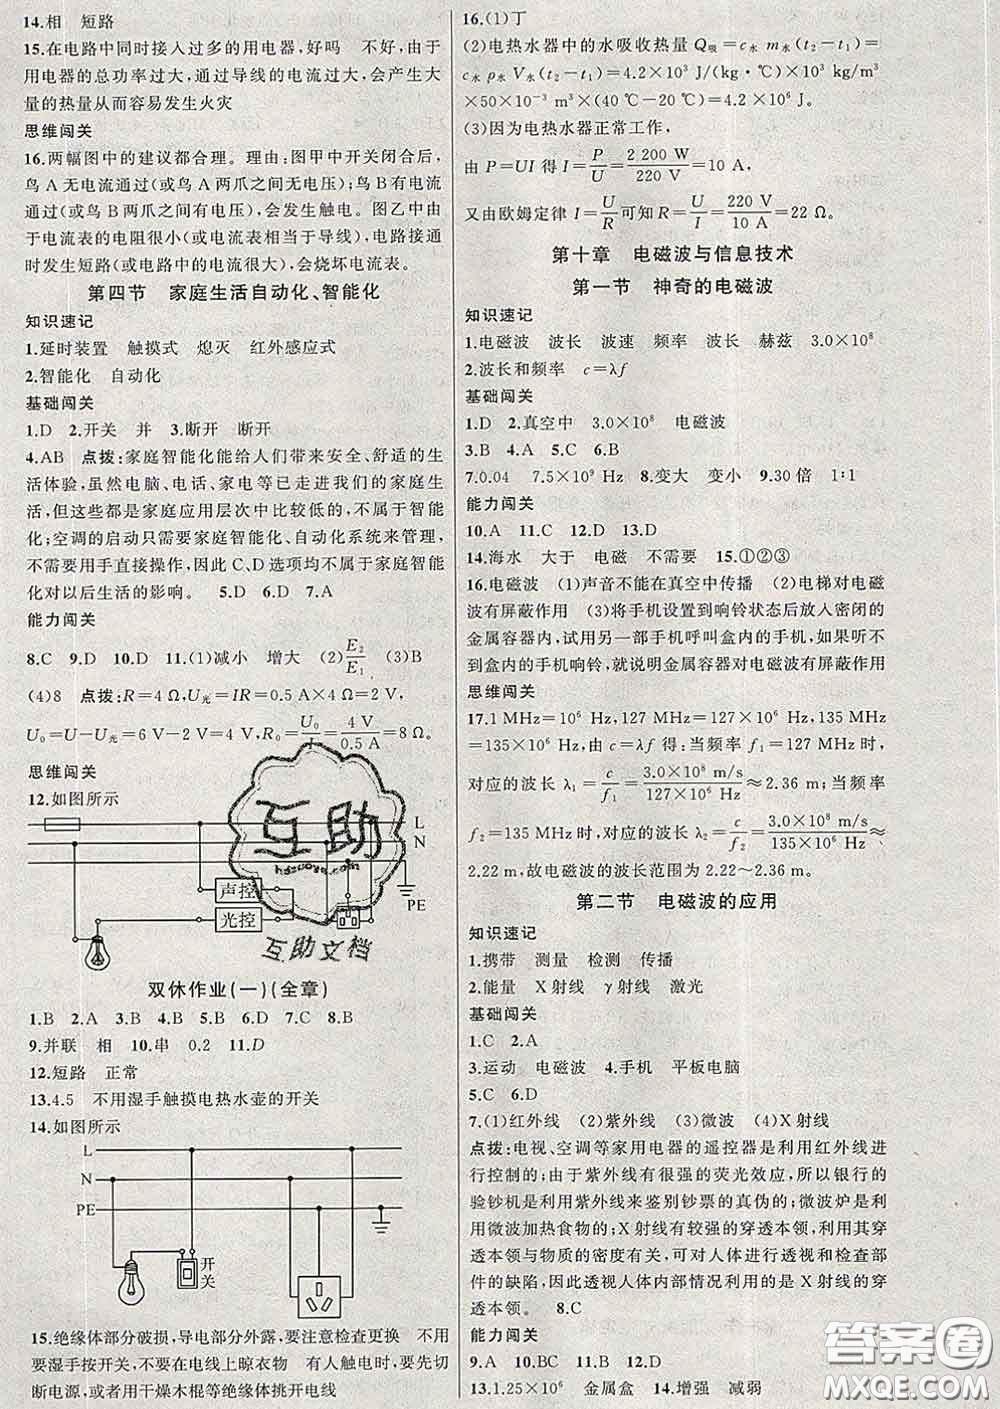 14.相　短路
15.在电路中同时接入过多的用电器,好吗　不好,由于
用电器的总功率过大,通过导线的电流过大,会产生大
量的热量从而容易发生火灾
思维闯关
16.两幅图中的建议都合理。理由:图甲中开关闭合后,
鸟 A 无电流通过(或鸟 A 两爪之间无电压),鸟 B 有电流
通过(或鸟 B 两爪之间有电压),会发生触电。图乙中由
于电流表的电阻很小(或电流表相当于导线),电路接通
时发生短路(或电路中的电流很大),会烧坏电流表。
第四节　家庭生活自动化、智能化
知识速记
1.延时装置　触摸式　熄灭　红外感应式
2.智能化　自动化
基础闯关
1.D　2.开关　并　3.断开　断开
4.AB　点拨:家庭智能化能给人们带来安全、舒适的生
活体验,虽然电脑、电话、家电等已走进我们的家庭生
活,但这些都是家庭应用层次中比较低的,不属于智能
化;空调的启动只需要家庭智能化、自动化系统来管理,
不需要用手直接操作,因此 C、D 选项均不属于家庭智能
化对以后生活的影响。　5.D　6.D　7.A
能力闯关
8.C　9.D　10.D　11.(1)减小　增大　(2)E₂/E₁　(3)B
(4)8　点拨:R=4 Ω,U光=IR=0.5 A×4 Ω=2 V,
U₀=U-U光=6 V-2 V=4 V,R₀=U₀/I=4 V/0.5 A=8 Ω。
思维闯关
12.如图所示
L
N
PE
声控
光控
双休作业(一)(全章)
1.B　2.A　3.B　4.B　5.B　6.D　7.C　8.B
9.并联　相　10.串　0.2　11.D
12.短路　正常
13.4.5　不用湿手触摸电热水壶的开关
14.如图所示
L
N
PE
开
关
15.绝缘体部分破损,导电部分外露,要注意检查更换　不用
要用湿手按开关,不要在电线上晾衣物　有人触电时,要先切
断电源,或者用干燥木棍等绝缘体挑开电线
16.(1)丁
(2)电热水器中的水吸收热量 Q吸=c水 m水(t₂-t₁)=
c水 ρ水 V水(t₂-t₁)=4.2×10³ J/(kg·℃)×10³ kg/m³
×50×10⁻³ m³×(40 ℃-20 ℃)=4.2×10⁶ J。
(3)因为电热水器正常工作,
由 P=UI 得 I=P/U=2 200 W/220 V=10 A,
又由欧姆定律 I=U/R 可知 R=U/I=220 V/10 A=22 Ω。
第十章　电磁波与信息技术
第一节　神奇的电磁波
知识速记
1.电磁波　波长　波速　频率　波长　赫兹　3.0×10⁸
2.波长和频率　c=λf
基础闯关
1.D　2.真空中　3.0×10⁸　电磁波
3.B　4.A　5.C　6.B
7.0.04　7.5×10⁹ Hz　8.变大　变小　9.30倍　1∶1
能力闯关
10.A　11.C　12.D　13.D
14.海水　大于　电磁　不需要　15.①②③
16.电磁波　(1)声音不能在真空中传播　(2)电梯对电磁
波有屏蔽作用　(3)将手机设置到响铃状态后放入密闭的
金属容器内,试用另一部手机呼叫盒内的手机,如果听不
到盒内的手机响铃,就说明金属容器对电磁波有屏蔽作用
思维闯关
17.1 MHz=10⁶ Hz,127 MHz=127×10⁶ Hz,135 MHz
=135×10⁶ Hz,由 c=λf 得:当频率 f₁=127 MHz 时,
对应的波长 λ₁=c/f₁=3.0×10⁸ m/s/127×10⁶ Hz≈2.36 m;当频率
f₂=135 MHz 时,对应的波长 λ₂=c/f₂=3.0×10⁸ m/s/135×10⁶ Hz≈
2.22 m,故电磁波的波长范围为 2.22～2.36 m。
第二节　电磁波的应用
知识速记
1.携带　测量　检测　传播
2.能量　X 射线　γ射线　激光
基础闯关
1.C　2.A
3.运动　电磁波　4.手机　平板电脑
5.C　6.D
7.(1)红外线　(2)紫外线　(3)微波　(4)X 射线
点拨:电视、空调等家用电器的遥控器是利用红外线进
行控制的;由于紫外线有很强的荧光效应,所以银行的
验钞机是利用紫外线来鉴别钞票的真伪的;微波炉是利
用微波加热食物的;X 射线有较强的穿透本领,利用其穿
透本领与物质的密度有关,可对人体进行透视和检查部
件的缺陷,因此透视人体内部情况利用的是 X 射线的穿
透本领。　8.C
能力闯关
9.A　10.BC　11.B　12.D
13.1.25×10⁶　金属盒　14.增强　减弱
互助
hdzuoye.com
互助文档
答案圈
MXQE.COM